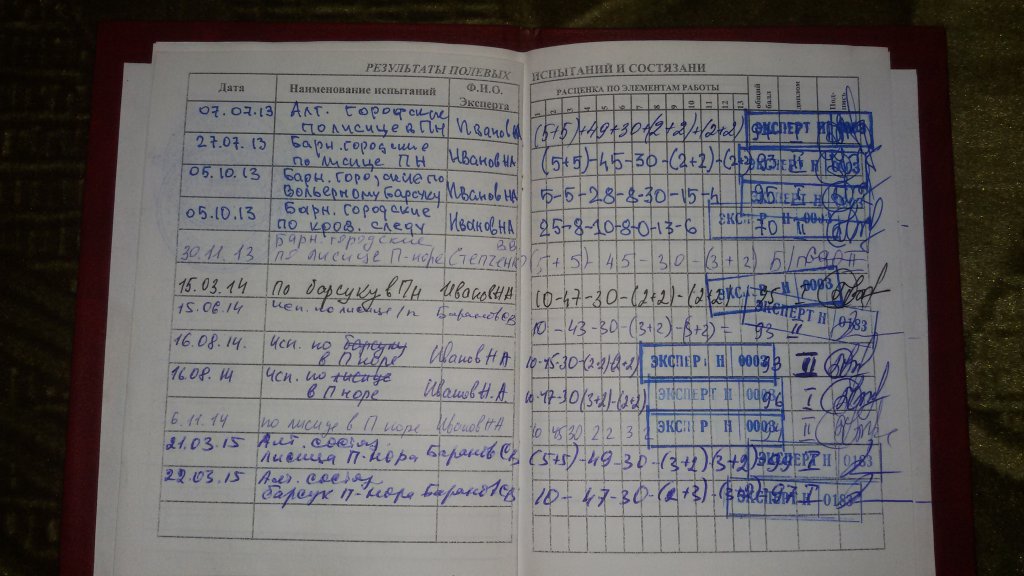 РЕЗУЛЬТАТЫ ПОЛЕВЫХ ИСПЫТАНИЙ И СОСТЯЗАНИ
Дата Наименование испытаний Ф.И.О. Эксперта РАСЦЕНКА ПО ЭЛЕМЕНТАМ РАБОТЫ общий балл диплом
1 2 3 4 5 6 7 8 9 10 11 12 13
07.07.13 Алт. городские
по лисице в ПН Иванов НА (5+5)+49+30+(2+2)+(2+2) ЭКСПЕРТ Н 0003
27.07.13 Барн. городские
по лисице ПН Иванов НА (5+5)-45-30-(2+2)- 93 II ЭКСПЕРТ Н 0003
05.10.13 Барн. городские по
вольерному барсуку Иванов НА 5-5-28-8-30-15-4 95 I ЭКСПЕРТ Н 0003
05.10.13 Барн. городские
по кров. следу Иванов НА 25-8-10-8-0-13-6 70 II
30.11.13 Барн. городские
по лисице П-норе Степченко ВВ (5+5)-45-30-(3+2)
15.03.14 по барсуку в ПН Иванов НА 10-47-30-(2+2)-(2+2) 95 0003
15.06.14 Исп. по лисице /п Баранов СВ 10-43-30-(3+2)-(3+2)= 93 II ЭКСПЕРТ Н 0183
16.08.14. Исп. по барсуку
в П норе Иванов НА ЭКСПЕРТ Н 0003 93 II
16.08.14 Исп. по лисице
в П норе Иванов Н.А. 10-47-30(3+2)-(2+2) ЭКСПЕРТ Н 0003 96 I
6.11.14 по лисице в П норе Иванов НА 10 45 30 2 2 3 ЭКСПЕРТ Н 0003
21.03.15 Алт. состяз
лисица П-нора Баранов СВ (5+5)-49-30-(3+2)-(3+2)-99 I ЭКСПЕРТ Н 0183
22.03.15 Алт. состяз
барсук П-нора Баранов СВ 10-47-30-(2+3)- 97 I ЭКСПЕРТ Н 0183